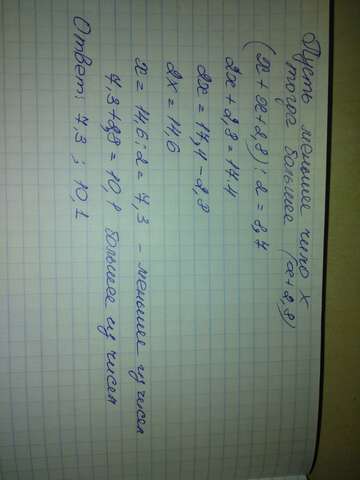 Пусть меньшее число х
тогда большее (х+2,8)
(х + х+2,8) : 2 = 8,7
2х + 2,8 = 17,4
2х = 17,4 - 2,8
2х = 14,6
х = 14,6 : 2 = 7,3 - меньшее из чисел
7,3+2,8 = 10,1 большее из чисел
Ответ: 7,3 ; 10,1